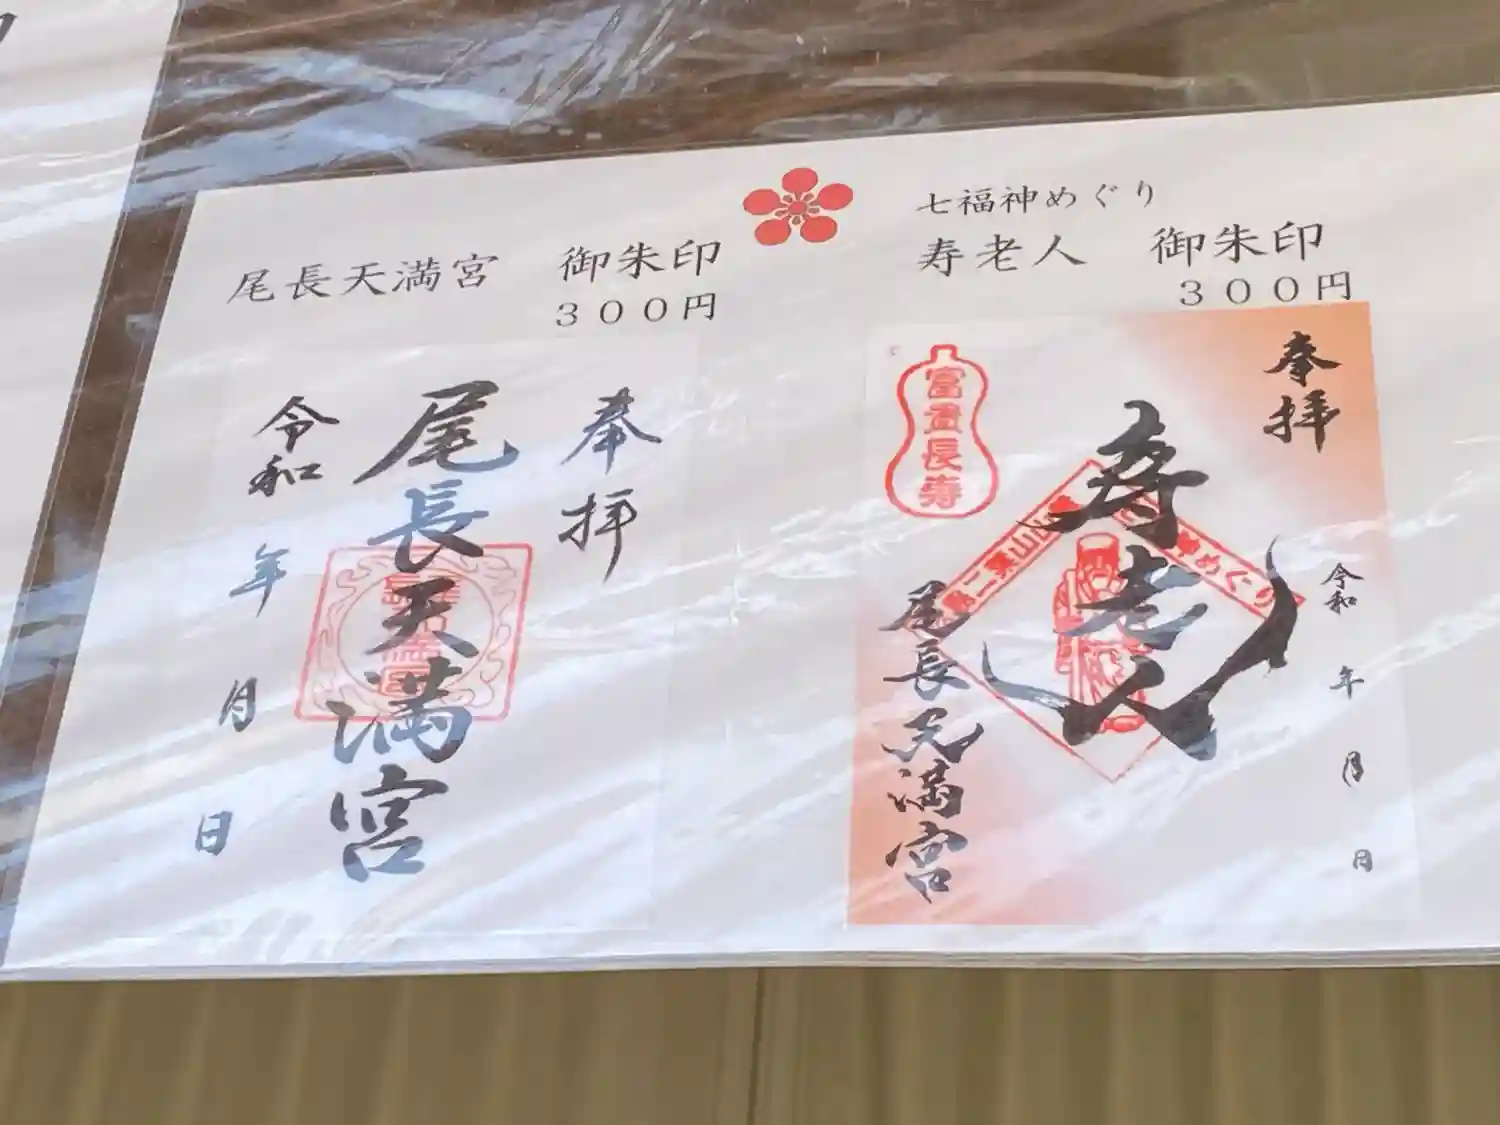 尾長天満宮　御朱印
３００円
奉拝
尾長天満宮
令和
年
月
日
七福神めぐり
寿老人　御朱印
３００円
奉拝
令和
年
月
日
寿老人
富貴長寿
尾長天満宮